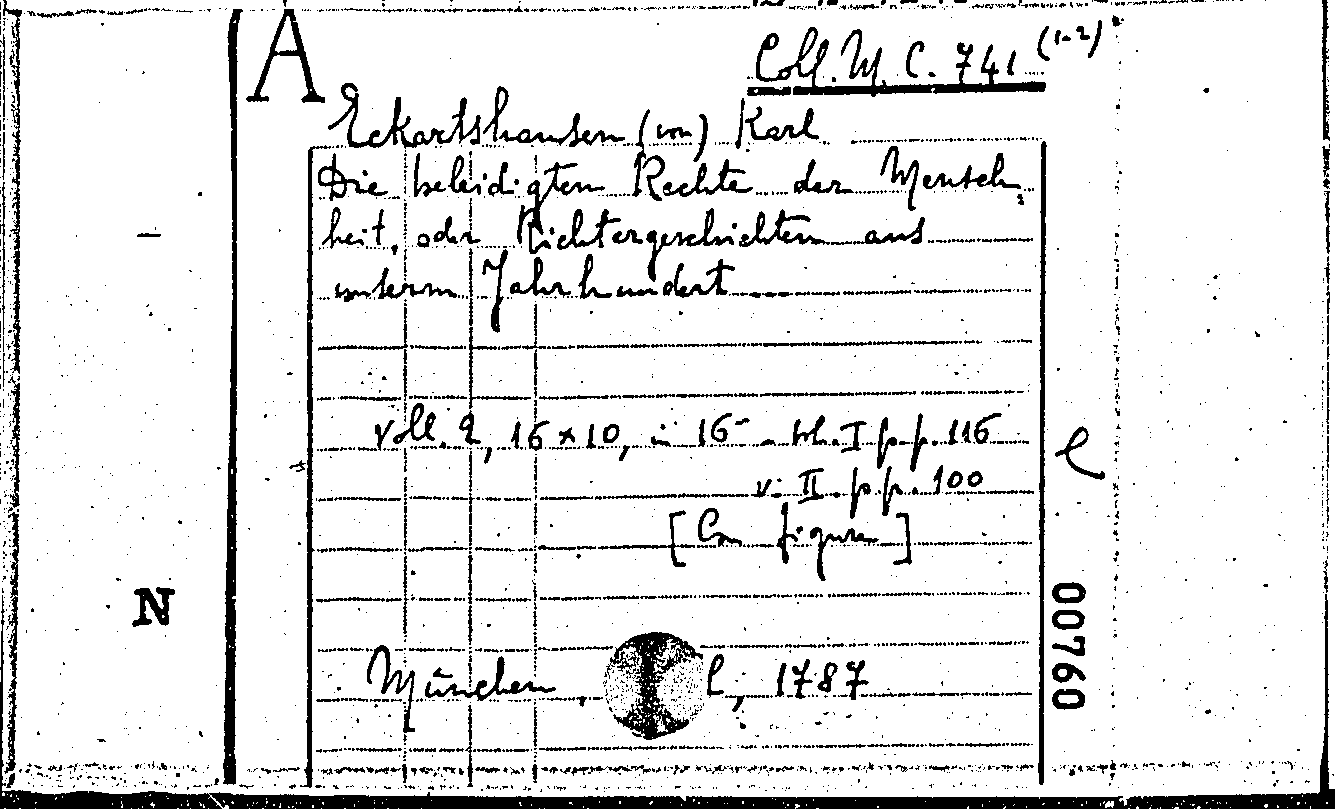 A
Coll. M. C. 741 (1-2)
Eckartshausen (von) Karl
Die beleidigten Rechte der Mensch
heit, oder Richtergeschichten aus
unserm Jahrhundert ...
voll. 2, 16 x 10, in 16- vol. I pp. 116
v. II pp. 100
[Con figure]
N
00760
München, l, 1787